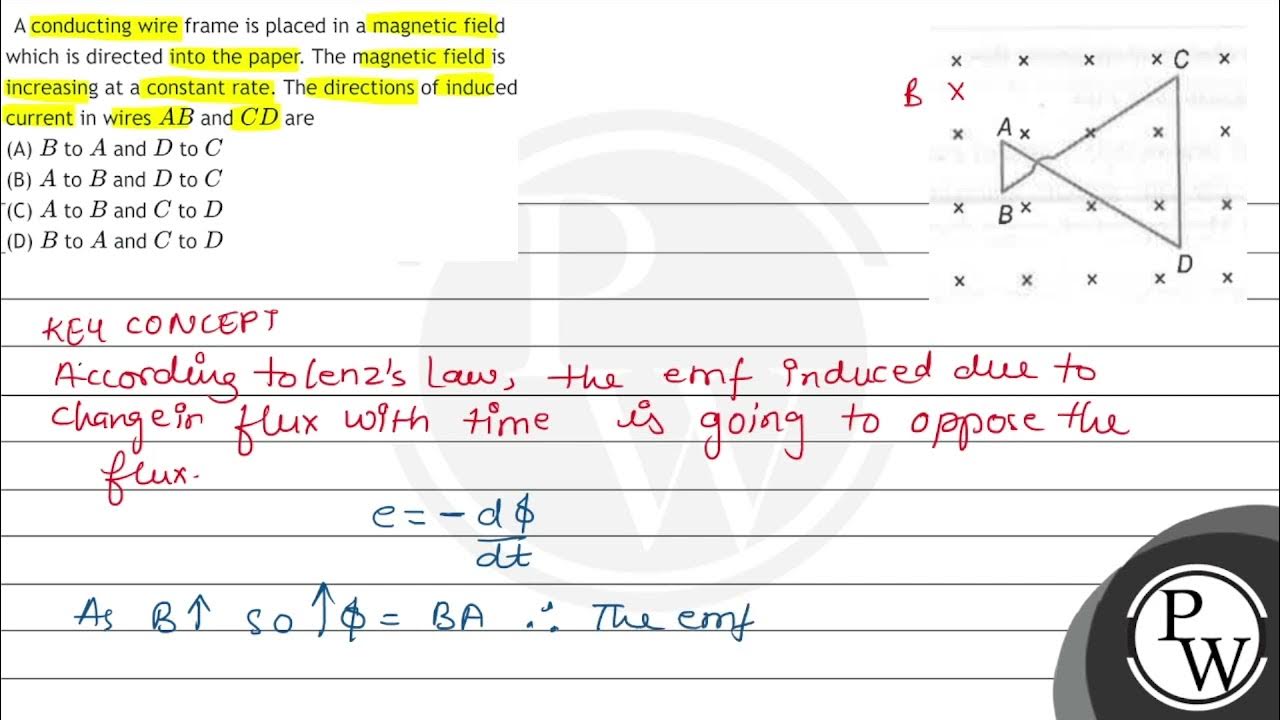 A conducting wire frame is placed in a magnetic field
which is directed into the paper. The magnetic field is
increasing at a constant rate. The directions of induced
current in wires AB and CD are
(A) B to A and D to C
(B) A to B and D to C
(C) A to B and C to D
(D) B to A and C to D
× × × × C ×
B ×
× A × × × ×
× B × × × ×
D
× × × × ×
KEY CONCEPT
According to lenz's Law, the emf induced due to
change in flux with time is going to oppose the
flux.
e = - dϕ/dt
As B↑ so ↑ϕ = BA ∴ The emf
P
W
P
W